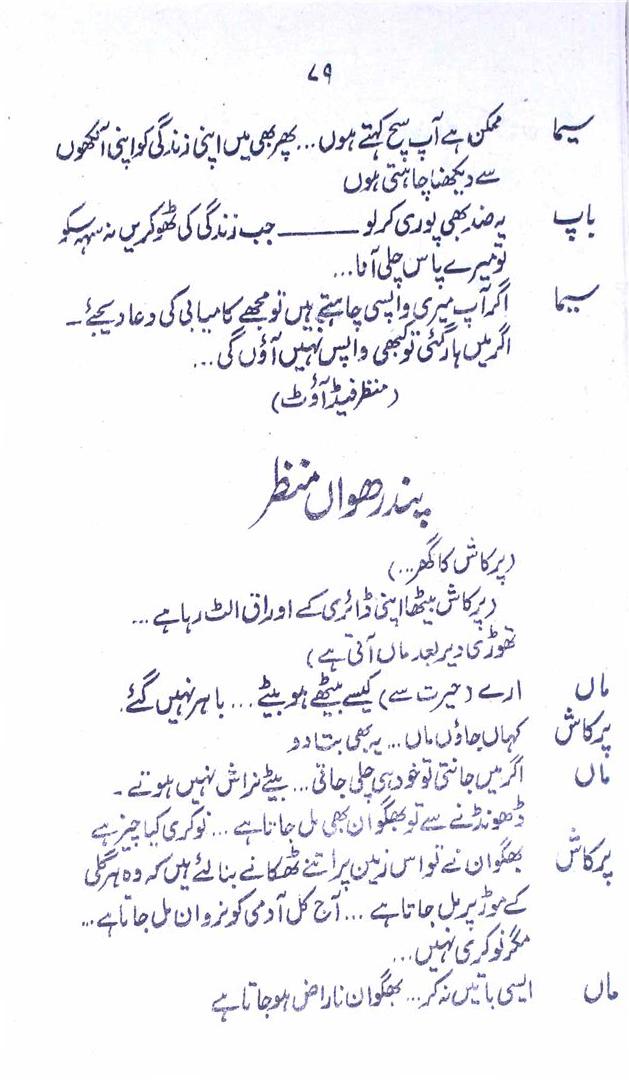 ۷۹
سیما ممکن ہے آپ سچ کہتے ہوں... پھر بھی میں اپنی زندگی کو اپنی آنکھوں
سے دیکھنا چاہتی ہوں
باپ یہ ضد بھی پوری کر لو ــــــــ جب زندگی کی ٹھوکریں نہ سہہ سکو
تو میرے پاس چلی آنا...
سیما اگر آپ میری واپسی چاہتے ہیں تو مجھے کامیابی کی دعا دیجئے۔
اگر میں ہار گئی تو کبھی واپس نہیں آؤں گی...
(منظر فیڈ آؤٹ)
پندرھواں منظر
(پرکاش کا گھر...)
(پرکاش بیٹھا اپنی ڈائری کے اوراق الٹ رہا ہے...
تھوڑی دیر بعد ماں آتی ہے)
ماں ارے (حیرت سے) کیسے بیٹھے ہو بیٹے... باہر نہیں گئے
پرکاش کہاں جاؤں ماں... یہ بھی بتا دو
ماں اگر میں جانتی تو خود ہی چلی جاتی... بیٹے نراش نہیں ہوتے۔
ڈھونڈنے سے تو بھگوان بھی مل جاتا ہے... نوکری کیا چیز ہے
پرکاش بھگوان نے تو اس زمین پر اتنے ٹھکانے بنا لئے ہیں کہ وہ ہر گلی
کے موڑ پر مل جاتا ہے... آج کل آدمی کو نروان مل جاتا ہے...
مگر نوکری نہیں...
ماں ایسی باتیں نہ کر... بھگوان ناراض ہو جاتا ہے